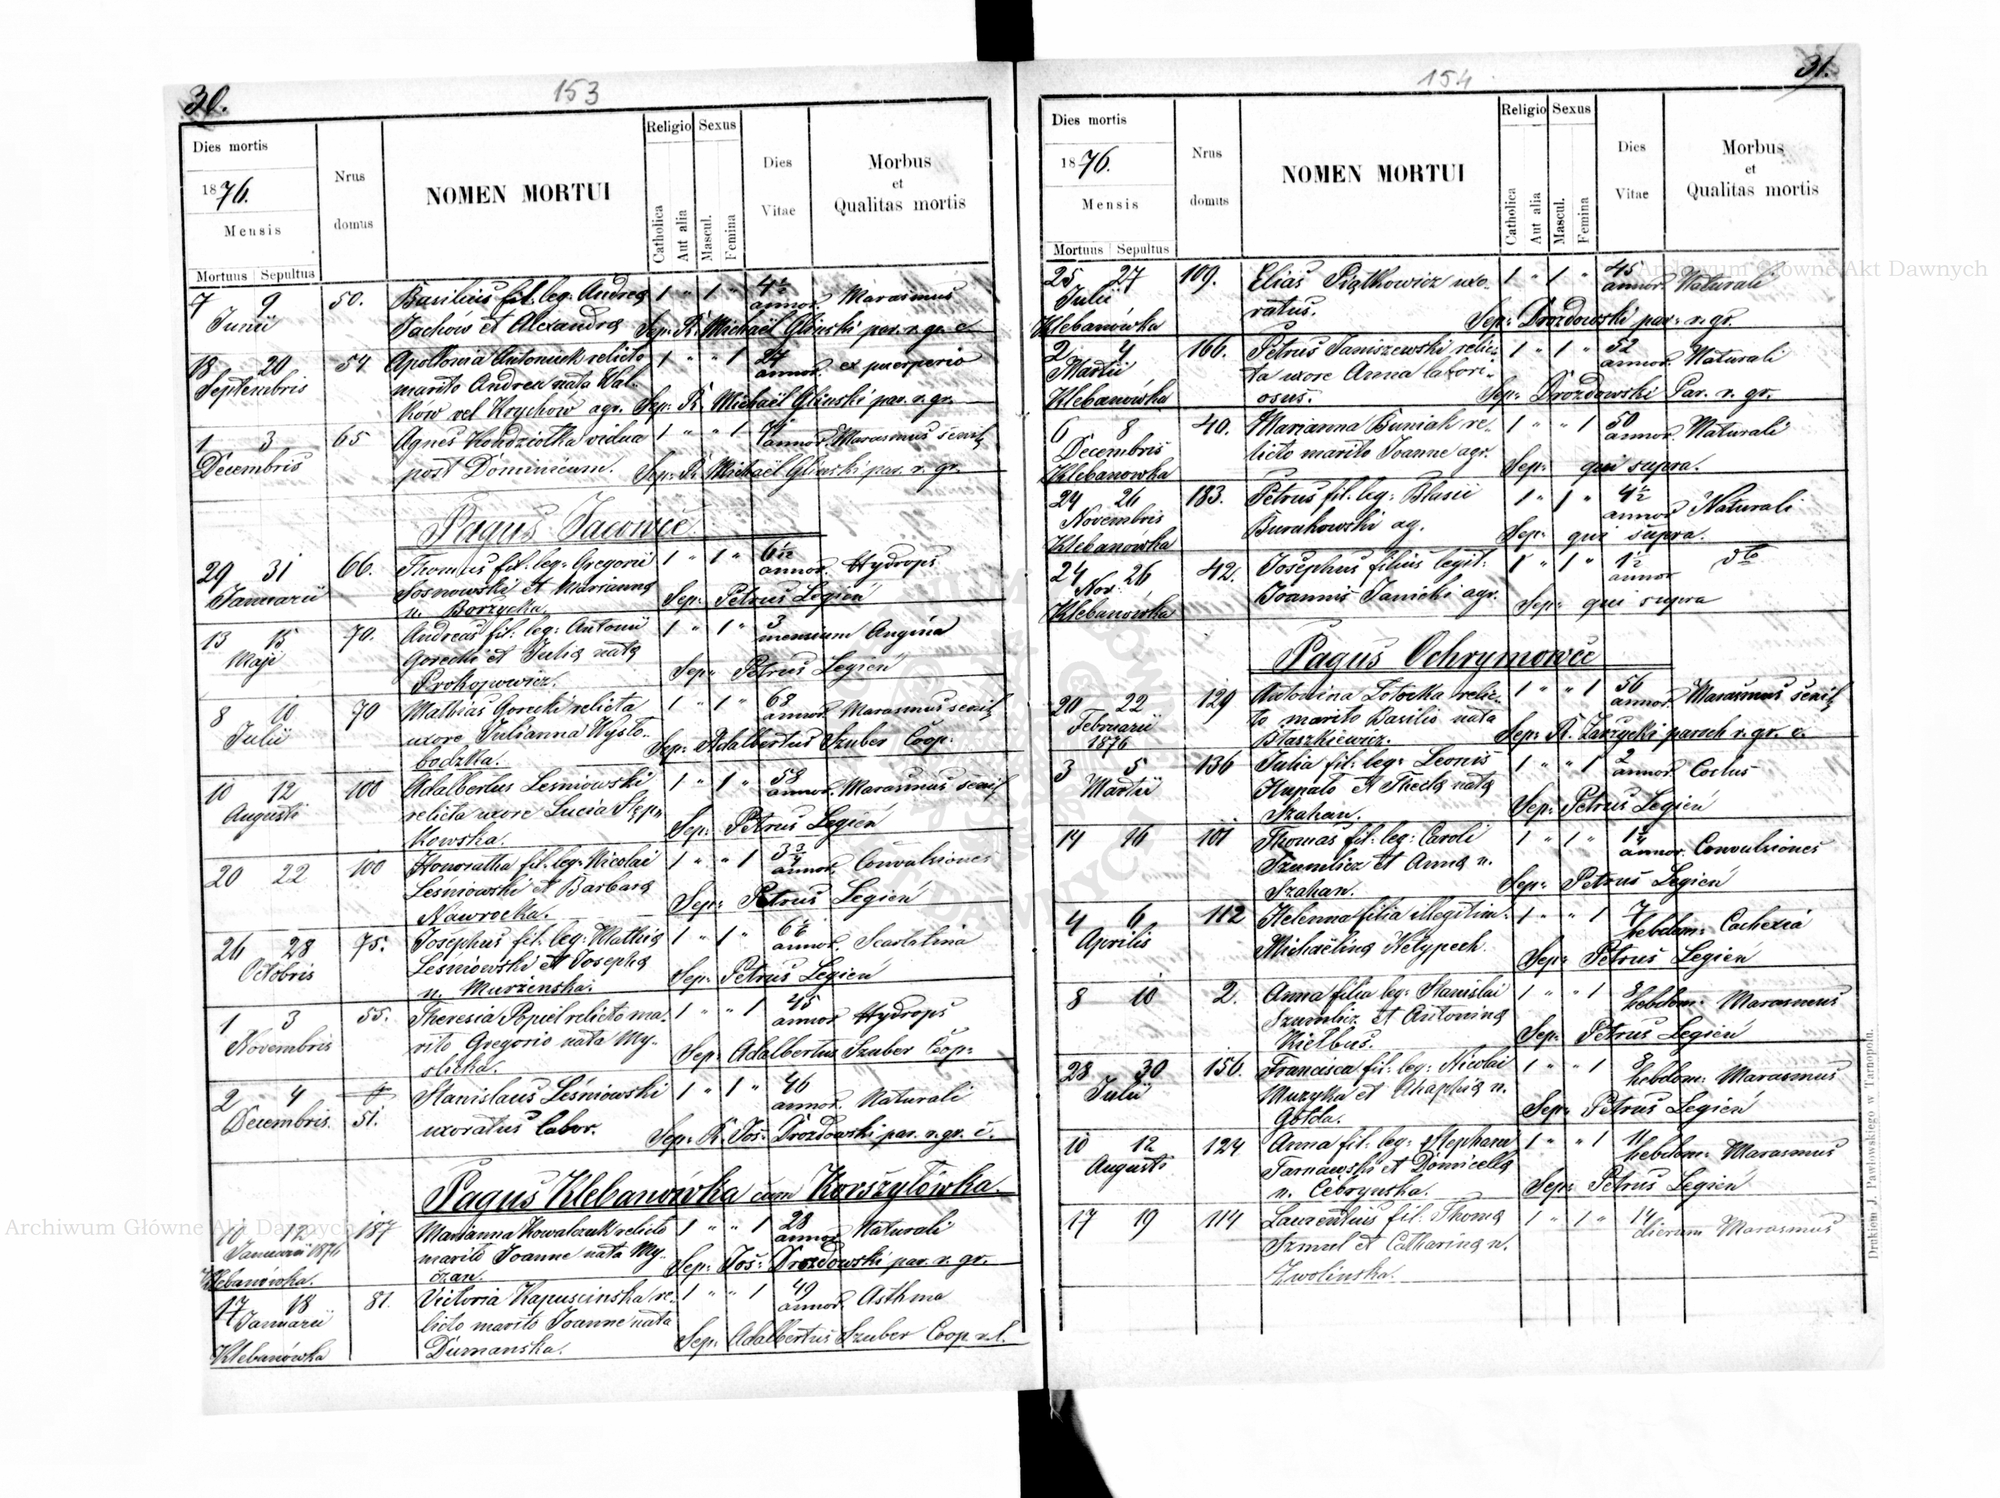 30.
153
Dies mortis
1876.
Mensis
Mortuus | Sepultus
Nrus domus
NOMEN MORTUI
Religio
Catholica
Aut alia
Sexus
Mascul.
Femina
Dies Vitae
Morbus
et
Qualitas mortis
7 9 50. Basilius fil: leg: Andreą 1 " 1 " 4½ Marasmus
Junii annor.
Jachów et Alexandrą Sep: R. Michaël Gliński par. r. gr. c.
18 20 54. Apollonia Antoniuk relicto 1 " " 1 27 ex puerperio
Septembris marito Andrea nata Wal- annor.
ków vel Krychów agr. Sep: R. Michaël Gliński par. r. gr.
1 3 65 Agnes Kondziołka vidua 1 " " 1 annor. Marasmus senil
Decembris post Dominicum. Sep: R. Michaël Gliński par. r. gr.
Pagus Jacowce
29 31 66. Thomas fil: leg: Gregorii 1 " 1 " annor. Hydrops
Januarii Sosnowski et Marianną Sep: Petrus Legień
n. Borzycka.
13 15 70. Andreas fil: leg: Antonii 1 " 1 " 3 mensium Angina
Maji Gorecki et Julią natą Sep: Petrus Legień
Prokopowicz.
8 10 70 Mathias Gorecki relicta 1 " 1 " 68 annor. Marasmus senil
Julii uxore Julianna Wysto- Sep: Adalbertus Szuber Coop.
bodzka.
10 12 100 Adalbertus Leśniowski 1 " 1 " 58 annor. Marasmus senil
Augusti relicta uxore Lucia Sep: Petrus Legień
kowska.
20 22 100 Honoratha fil: leg: Nicolai 1 " " 1 3¾ annor. Convulsiones
Leśniowski et Barbarą Sep: Petrus Legień
Nawrocka.
26 28 75. Josephus fil: leg: Mathią 1 " 1 " annor. Scarlatina
Octobris Leśniowski et Josephą Sep: Petrus Legień
n. Murzenska.
1 3 55. Theresia Popiel relicto ma- 1 " " 1 45 annor Hydrops
Novembris rito Gregorio nata My- Sep: Adalbertus Szuber Coop.
slicka.
2 4 Stanislaus Leśniowski 1 " 1 " 46 annor. Naturali
Decembris 51. uxoratus labor. Sep: R. Jos: Drozdowski par. r. gr. c.
Pagus Klebanówka cum Korszyłówka.
10 12 187 Marianna Kowalczuk relicto 1 " " 1 28 annor. Naturali
Januarii 1876 marito Joanne nata My- Sep: Jos: Drozdowski par. r. gr.
Klebanówka. czan.
17 18 81. Victoria Kapuscinska re- 1 " " 1 49 annor. Asthma
Januarii licto marito Joanne nata Sep: Adalbertus Szuber Coop. r. l.
Klebanówka Dumanska.
31.
154
Dies mortis
1876.
Mensis
Mortuus | Sepultus
Nrus domus
NOMEN MORTUI
Religio
Catholica
Aut alia
Sexus
Mascul.
Femina
Dies Vitae
Morbus
et
Qualitas mortis
25 27 109. Elias Piątkowicz uxo- 1 " 1 " 45 annor. Naturali
Julii ratus. Sep: Drozdowski par: r. gr.
Klebanówka
2 4 166. Petrus Janiszewski relic- 1 " 1 " 52 annor. Naturali
Martii ta uxore Anna labori- Sep: Drozdowski Par. r. gr.
Klebanówka osus.
6 8 40. Marianna Buniak re- 1 " " 1 50 annor. Naturali
Decembris licto marito Joanne agr. Sep: qui supra.
Klebanowka
24 26 183. Petrus fil: leg: Blasii 1 " 1 " 4½ annor Naturali
Novembris Burakowski ag. Sep: qui supra.
Klebanówka
24 26 42. Josephus filius legit: 1 " 1 " 1½ annor dto
Nov: Joannis Janicki agr. Sep: qui supra
Klebanówka
Pagus Ochrymowce
20 22 129 Antonina Łotocka relic- 1 " " 1 56 annor. Marasmus senil
Februarii to marito Basilio nata Sep: R. Zarzycki paroch r. gr. c.
1876 Błaszkiewicz.
3 5 136 Julia fil: leg: Leonis 1 " " 1 2 annor.
Martii Hupało et Theclą natą Sep: Petrus Legień
Szahan.
14 16 101 Thomas fil: leg: Caroli 1 " 1 " 1½ annor. Convulsiones
Szumlicz et Anną n. Sep: Petrus Legień
Szahan.
4 6 112 Helenna filia illegitim. 1 " " 1 7 hebdom: Cachexia
Aprilis Michaëliną Sep: Petrus Legień
8 10 2. Anna filia leg: Stanislai 1 " " 1 8 hebdom: Marasmus
Szumlicz et Antoniną Sep: Petrus Legień
Kiełbus.
28 30 156. Francisca fil: leg: Nicolai 1 " " 1 8 hebdom: Marasmus
Julii Muzyka et n. Sep: Petrus Legień
Gołda.
10 12 124 Anna fil: leg: Stephani 1 " " 1 11 hebdom: Marasmus
Augusti Tarnawski et Domicellą Sep: Petrus Legień
n. Cebrynska.
17 19 114 Laurentius fil: Thomą 1 " 1 " 14 dierum Marasmus
Szmul et Catharina n.
Zwolinska.
Drukiem J. Pawłowskiego w Tarnopolu.
Archiwum Główne Akt Dawnych
Archiwum Główne Akt Dawnych